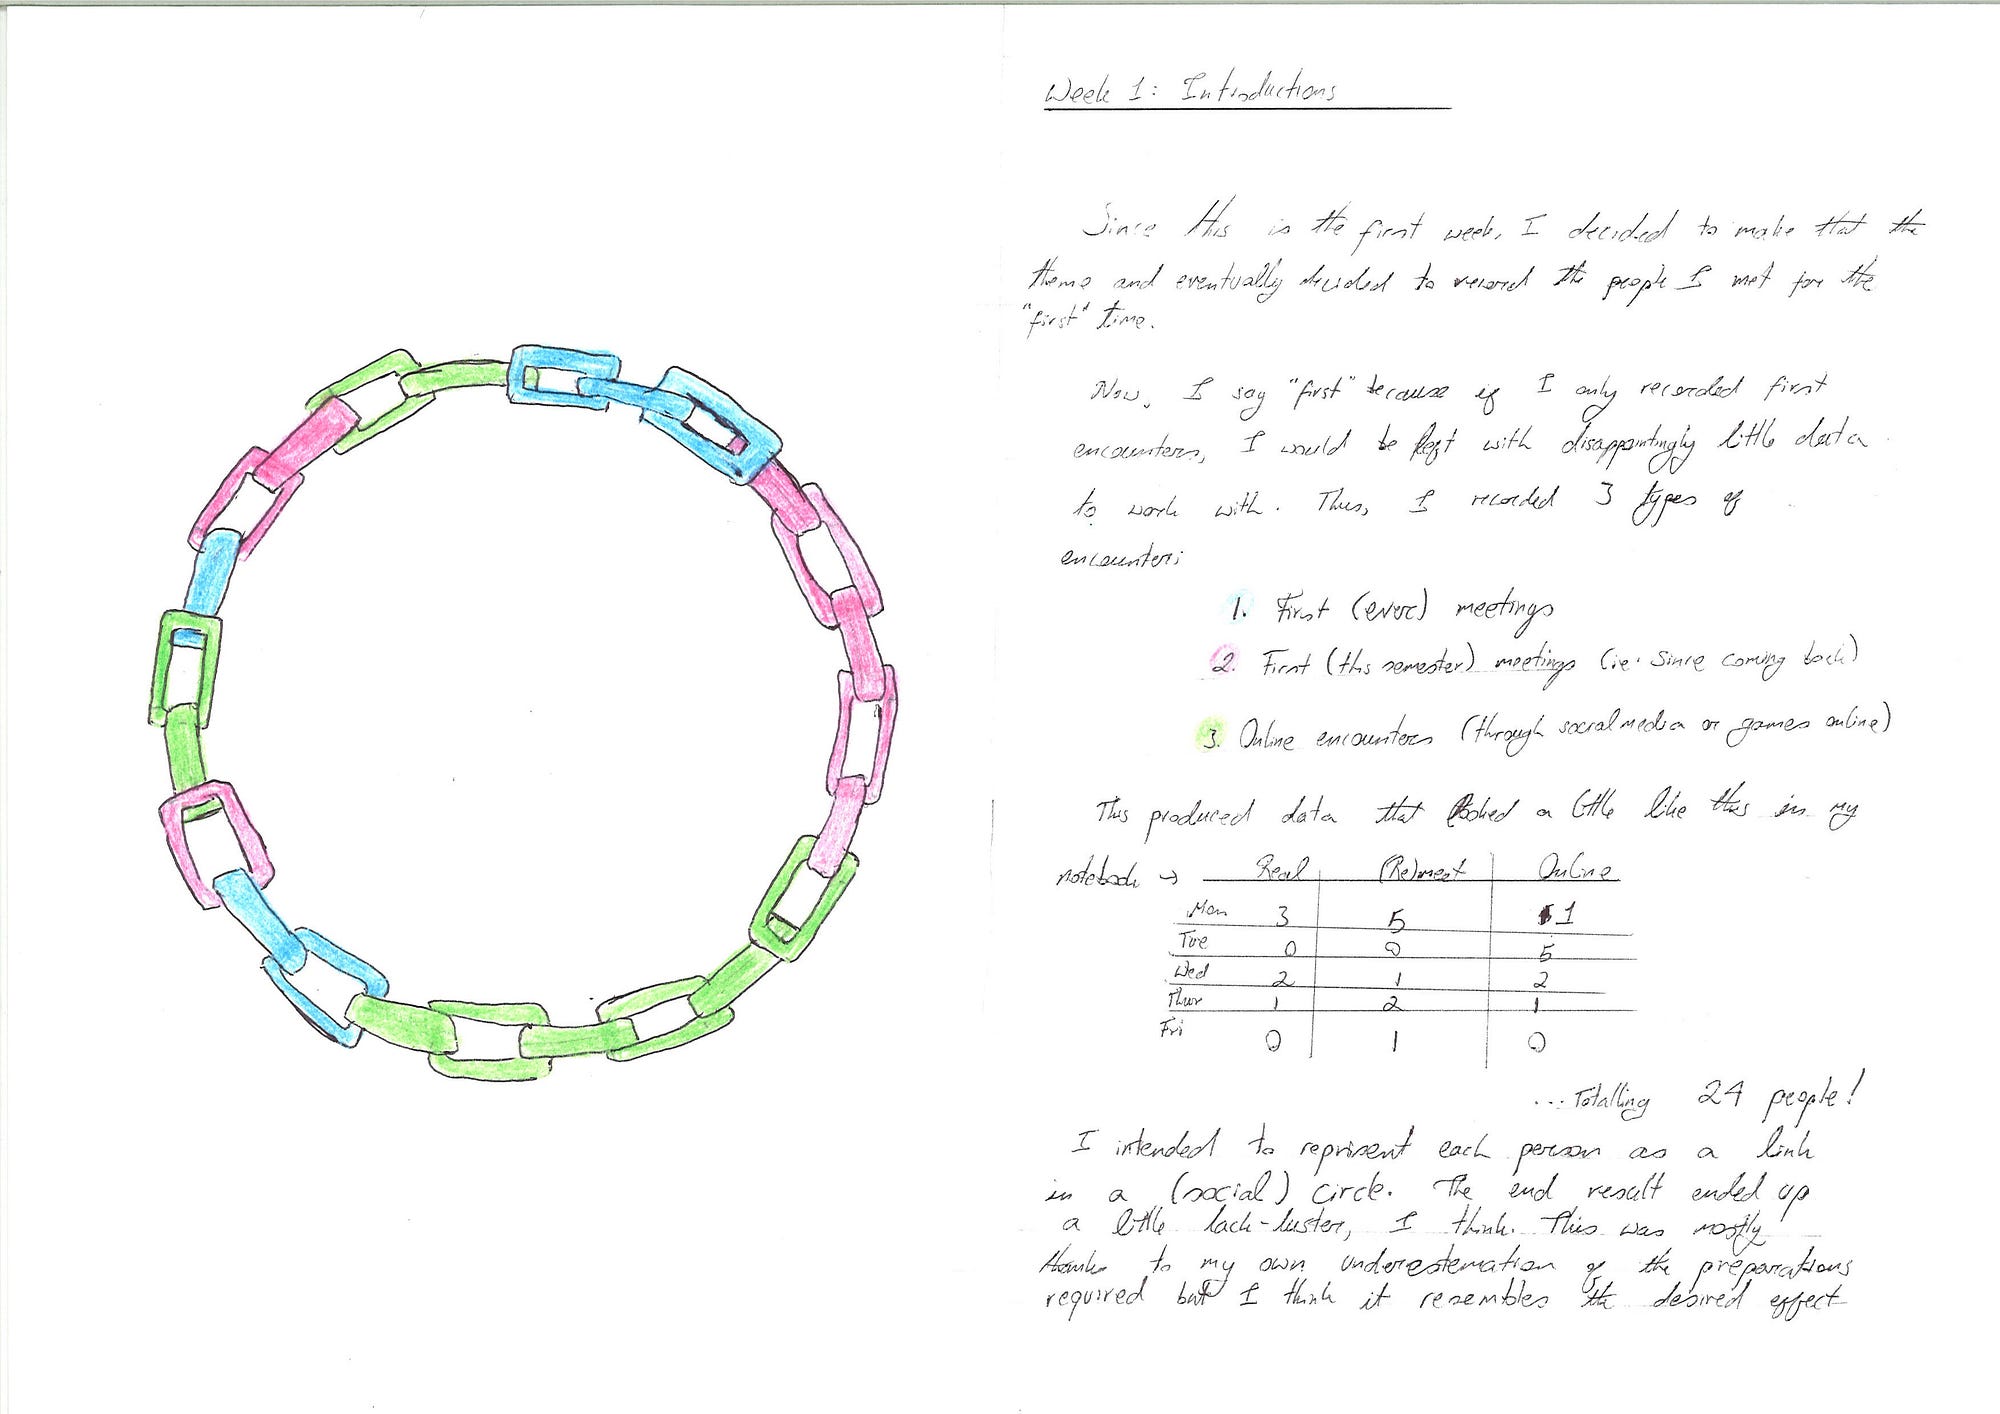 Week 1: Introductions
Since this is the first week, I decided to make that the
theme and eventually decided to record the people I met for the
"first" time.
Now, I say "first" because if I only recorded first
encounters, I would be left with disappointingly little data
to work with. Thus, I recorded 3 types of
encounter;
1. First (ever) meetings
2. First (this semester) meetings (ie. Since coming back)
3. Online encounters (through social media or games online)
This produced data that looked a little like this in my
notebook → Real (Re)meet Online
Mon 3 5 1
Tue 0 0 5
Wed 2 1 2
Thur 1 2 1
Fri 0 1 0
... Totalling 24 people!
I intended to reprisent each person as a link
in a (social) circle. The end result ended up
a little lack-luster, I think. This was mostly
thanks to my own underestemation of the preparations
required but I think it resembles the desired effect